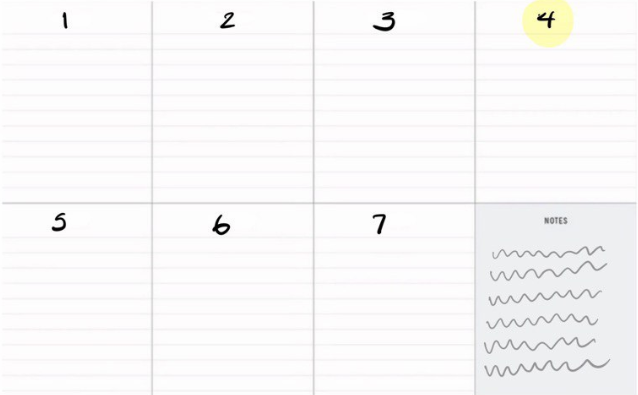 1
2
3
4
5
6
7
NOTES